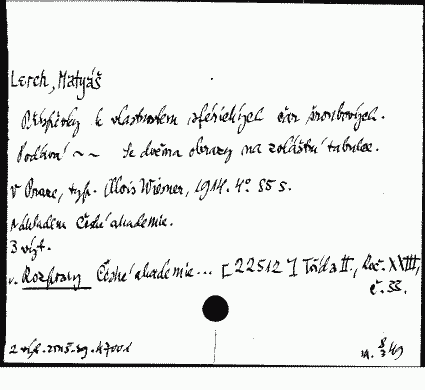 Lerch, Matyáš
Příspěvky k vlastnostem sférických čar šroubových.
Podává ~~ Se dvěma obrazy na zvláštní tabulce.
V Praze, typ. Alois Wiesner, 1914. 4° 55 s.
Nákladem České akademie.
3 výt.
v. Rozpravy České akademie... [22512] Třída II., Roč. XXIII,
č. 33.